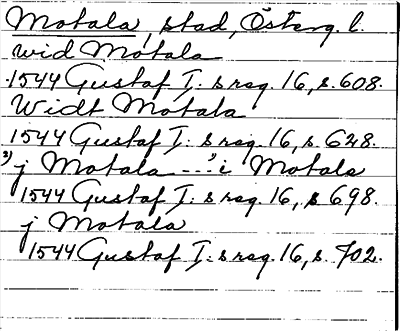 Motala, stad, Österg. l.
wid Motala
1544 Gustaf I: s reg. 16, s. 608.
Widt Motala
1544 Gustaf I: s reg. 16, s. 628.
j Motala --- i Motala
1544 Gustaf I: s reg. 16, s 698.
j Motala
1544 Gustaf I: s reg. 16, s. 702.